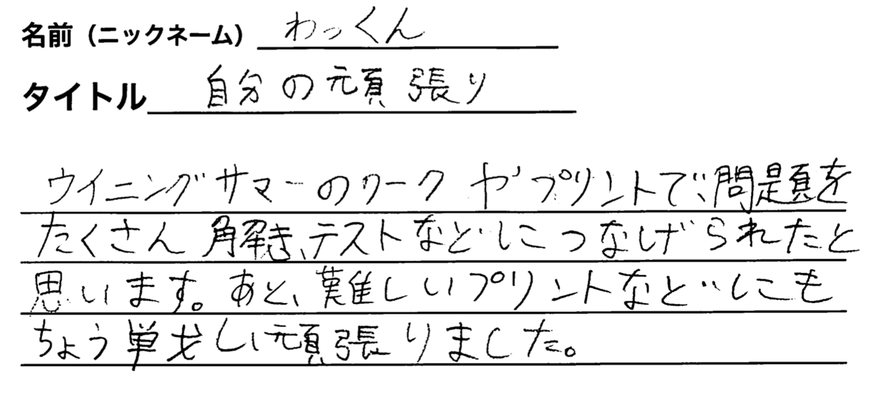 名前（ニックネーム） わっくん
タイトル 自分の頑張り
ウイニングサマーのワークやプリントで、問題を
たくさん解き、テストなどにつなげられたと
思います。あと、難しいプリントなどにも
ちょう戦し頑張りました。